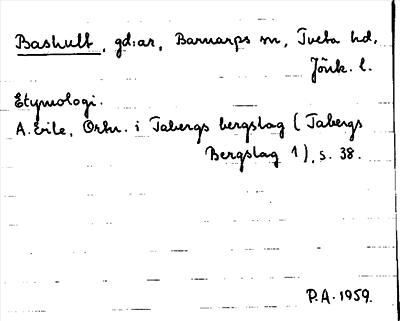 Bashult, gd:ar, Barnarps sn, Tveta hd,
Jönk. l.
Etymologi.
A. Erile, Ortn. i Tabergs bergslag (Tabergs
Bergslag 1), s. 38.
P.A. 1959.